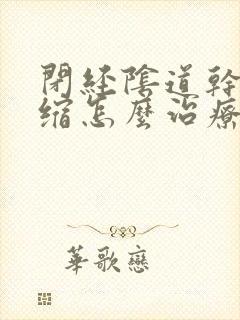 閉經陰道幹
縮怎麼治療
華歌戀